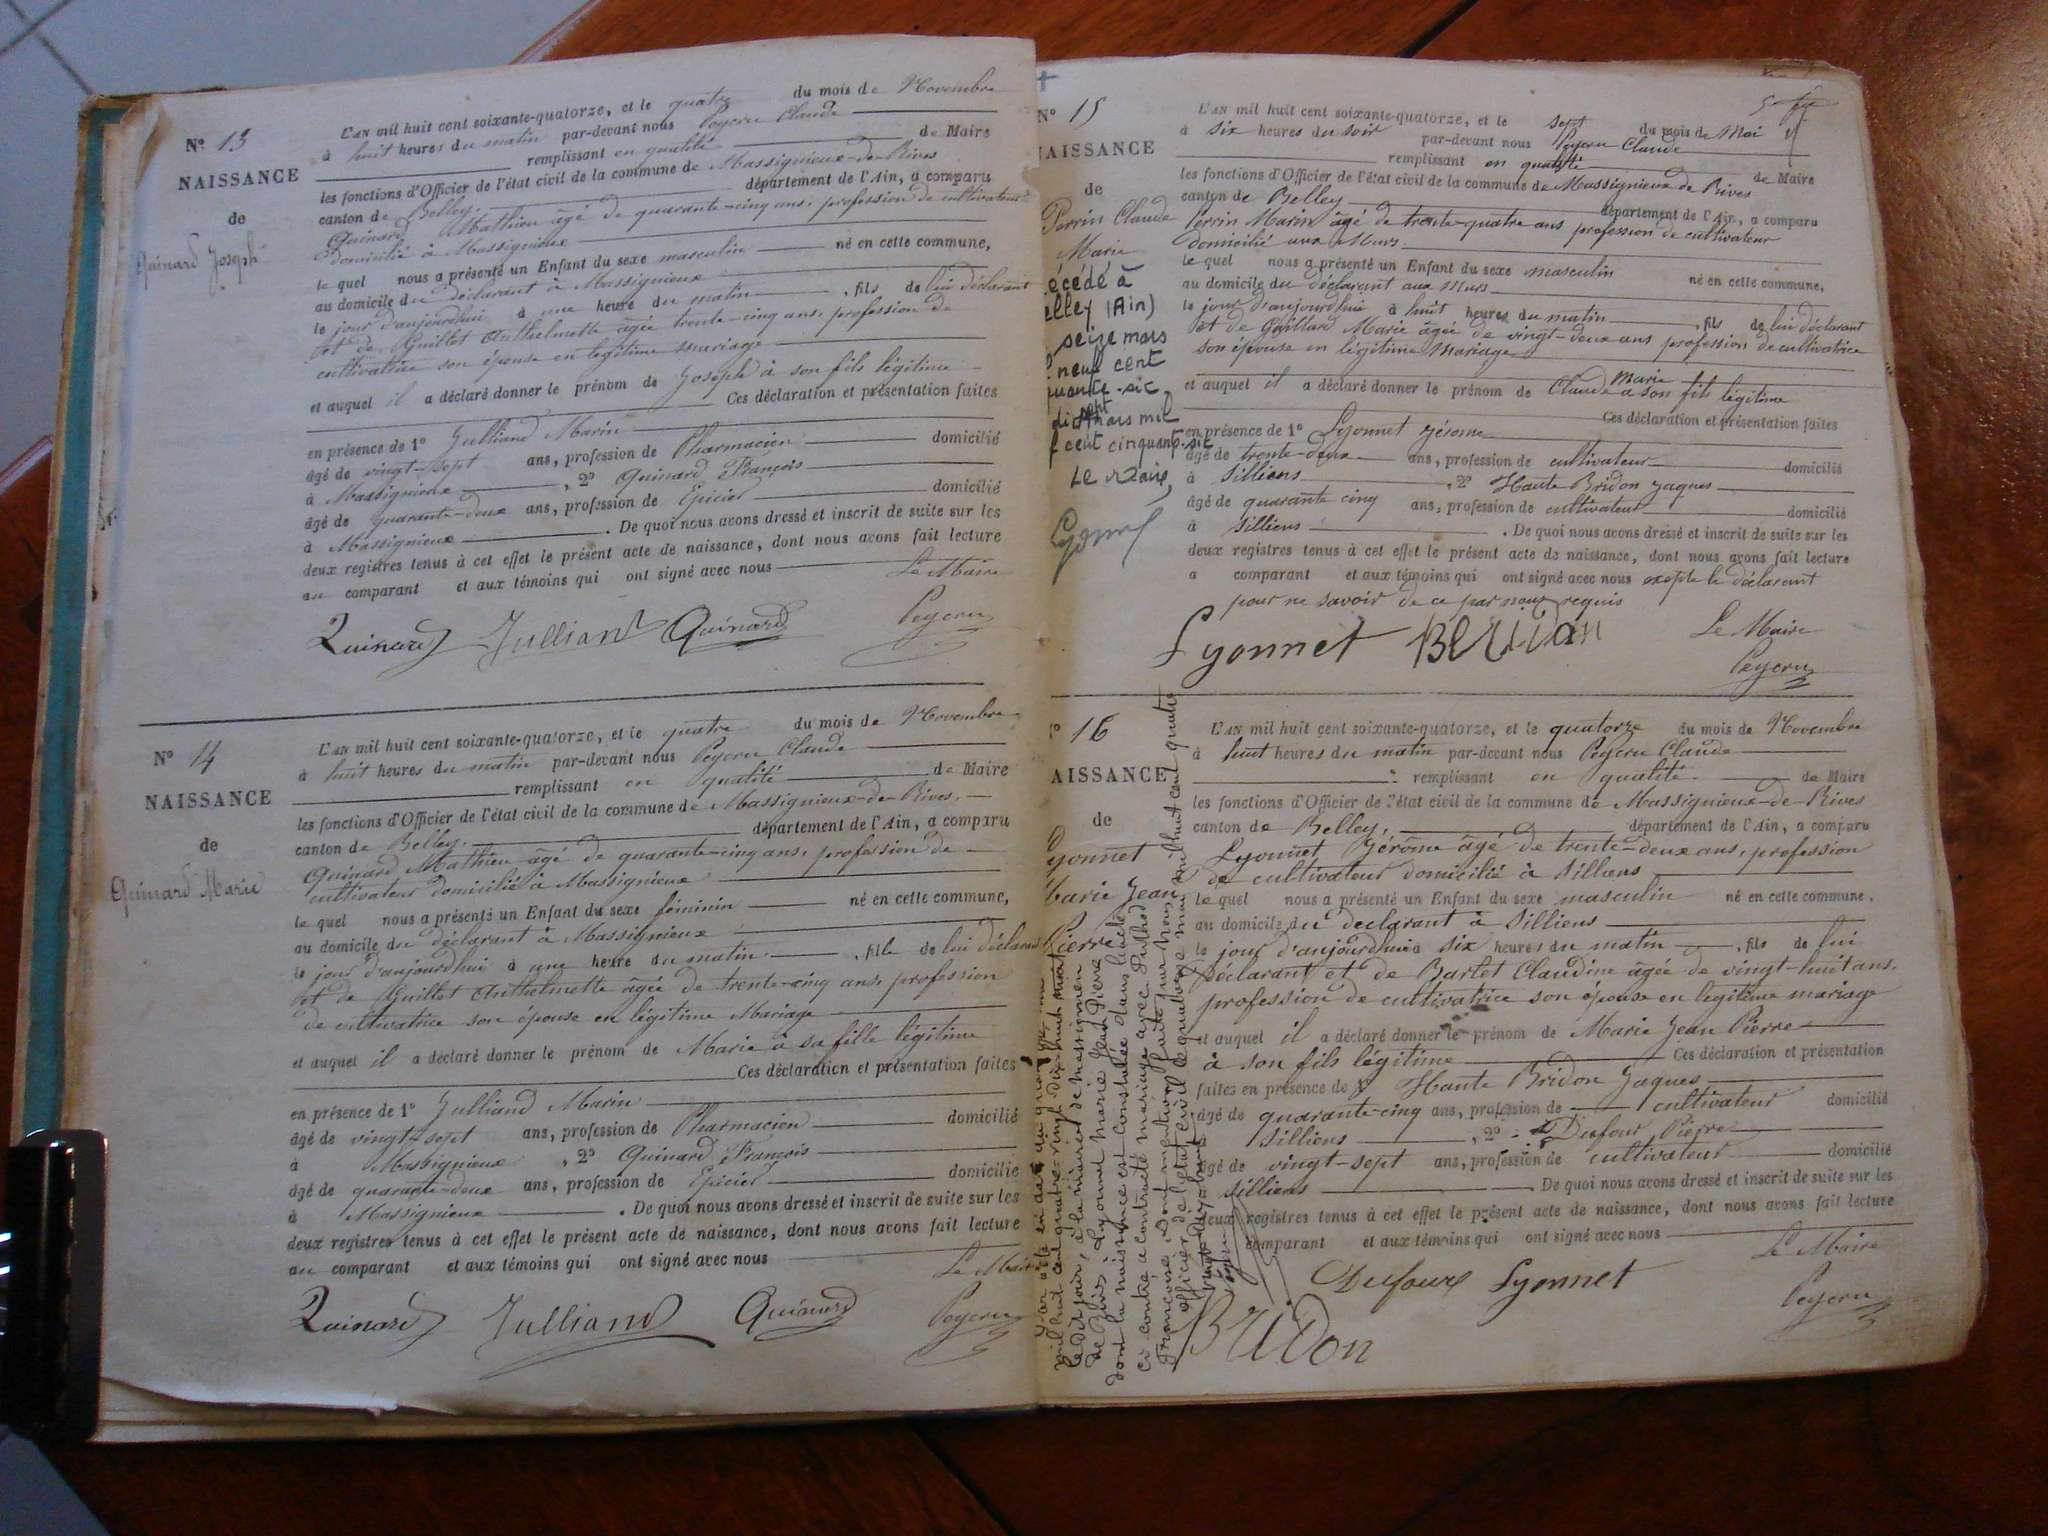 N° 13
NAISSANCE
de
Quinard Joseph
L'AN mil huit cent soixante-quatorze, et le quatre du mois de Novembre
à huit heures du matin par-devant nous Peycru Claude
remplissant en qualité de Maire
les fonctions d'Officier de l'état civil de la commune de Massignieux-de-Rives
canton de Belley, département de l'Ain, a comparu
Quinard Mathieu âgé de quarante-cinq ans, profession de cultivateur
domicilié à Massignieux
le quel nous a présenté un Enfant du sexe masculin né en cette commune,
au domicile du déclarant à Massignieux
le jour d'aujourdhui à une heure du matin , fils de lui déclarant
et de Guillet Anthelmette âgée trente-cinq ans, profession de
cultivatrice son épouse en légitime mariage
et auquel il a déclaré donner le prénom de Joseph à son fils légitime
Ces déclaration et présentation faites
en présence de 1° Julliand Marin
âgé de vingt-sept ans, profession de Pharmacien domicilié
à Massignieux , 2° Quinard François
âgé de quarante-deux ans, profession de Epicier domicilié
à Massignieux . De quoi nous avons dressé et inscrit de suite sur les
deux registres tenus à cet effet le présent acte de naissance, dont nous avons fait lecture
au comparant et aux témoins qui ont signé avec nous
Le Maire
Quinard Julliand Quinard Peycru
N° 14
NAISSANCE
de
Quinard Marie
L'AN mil huit cent soixante-quatorze, et le quatre du mois de Novembre
à huit heures du matin par-devant nous Peycru Claude
remplissant en qualité de Maire
les fonctions d'Officier de l'état civil de la commune de Massignieux-de-Rives,
canton de Belley, département de l'Ain, a comparu
Quinard Mathieu âgé de quarante-cinq ans, profession de
cultivateur domicilié à Massignieux
le quel nous a présenté un Enfant du sexe féminin né en cette commune,
au domicile du déclarant à Massignieux
le jour d'aujourdhui à une heure du matin , fille de lui déclarant
et de Guillet Anthelmette âgée de trente-cinq ans, profession
de cultivatrice son épouse en légitime Mariage
et auquel il a déclaré donner le prénom de Marie à sa fille légitime
Ces déclaration et présentation faites
en présence de 1° Julliand Marin
âgé de vingt-sept ans, profession de Pharmacien domicilié
à Massignieux , 2° Quinard François
âgé de quarante-deux ans, profession de Epicier domicilié
à Massignieux . De quoi nous avons dressé et inscrit de suite sur les
deux registres tenus à cet effet le présent acte de naissance, dont nous avons fait lecture
au comparant et aux témoins qui ont signé avec nous
Le Maire
Quinard Julliand Quinard Peycru
N° 15
NAISSANCE
de
Perrin Claude
Marie
écédé à
elley (Ain)
seize mars
neuf cent
quante-six
dix sept mars mil
f cent cinquante-six
Le Maire,
L'AN mil huit cent soixante-quatorze, et le sept du mois de Mai
à six heures du soir par-devant nous Peycru Claude
remplissant en qualité de Maire
les fonctions d'Officier de l'état civil de la commune de Massignieux de Rives
canton de Belley département de l'Ain, a comparu
Perrin Marin âgé de trente-quatre ans profession de cultivateur
domicilié aux Murs
le quel nous a présenté un Enfant du sexe masculin né en cette commune,
au domicile du déclarant aux Murs
le jour d'aujourdhui à huit heures du matin , fils de lui déclarant
et de Gaillard Marie âgée de vingt-deux ans profession de cultivatrice
son épouse en légitime Mariage
et auquel il a déclaré donner le prénom de Claude Marie à son fils légitime
Ces déclaration et présentation faites
en présence de 1° Lyonnet Jérome
âgé de trente-deux ans, profession de cultivateur domicilié
à Silliens , 2° Haute Bridon Jaques
âgé de quarante cinq ans, profession de cultivateur domicilié
à Silliens . De quoi nous avons dressé et inscrit de suite sur les
deux registres tenus à cet effet le présent acte de naissance, dont nous avons fait lecture
a comparant et aux témoins qui ont signé avec nous exepte le déclarent
pour ne savoir de ce par nous requis
Le Maire
Lyonnet Peycru
16
AISSANCE
de
yonnet
Marie Jean
Pierre
L'AN mil huit cent soixante-quatorze, et le quatorze du mois de Novembre
à huit heures du matin par-devant nous Peycru Claude
remplissant en qualité de Maire
les fonctions d'Officier de l'état civil de la commune de Massignieux-de-Rives
canton de Belley, département de l'Ain, a comparu
Lyonnet Jérome âgé de trente-deux ans, profession
de cultivateur domicilié à Silliens
le quel nous a présenté un Enfant du sexe masculin né en cette commune,
au domicile du declarant à Silliens
le jour d'aujourdhui à six heures du matin , fils de lui
déclarant et de Bartet Claudine âgée de vingt-huit ans,
profession de cultivatrice son épouse en légitime mariage
et auquel il a déclaré donner le prénom de Marie Jean Pierre
à son fils légitime Ces déclaration et présentation
faites en présence de 1° Haute Bridon Jaques
âgé de quarante-cinq ans, profession de cultivateur domicilié
à Silliens , 2° Dufour Pierre
âgé de vingt-sept ans, profession de cultivateur domicilié
Silliens De quoi nous avons dressé et inscrit de suite sur les
deux registres tenus à cet effet le présent acte de naissance, dont nous avons fait lecture
comparant et aux témoins qui ont signé avec nous
Le Maire
Dufour Lyonnet Peycru
Bridon
mil huit cent quatre-vingt dix-huit
le dit jour, à la mairie de Massignieu
de Rives, Lyonnet Marie Jean Pierre
dont la naissance est constatée dans l'acte
ci contre a contracté mariage avec
Françoise. Dont mention faite par nous
officier de l'état civil le quatorze mai mil huit cent quatre
vingt dix huit